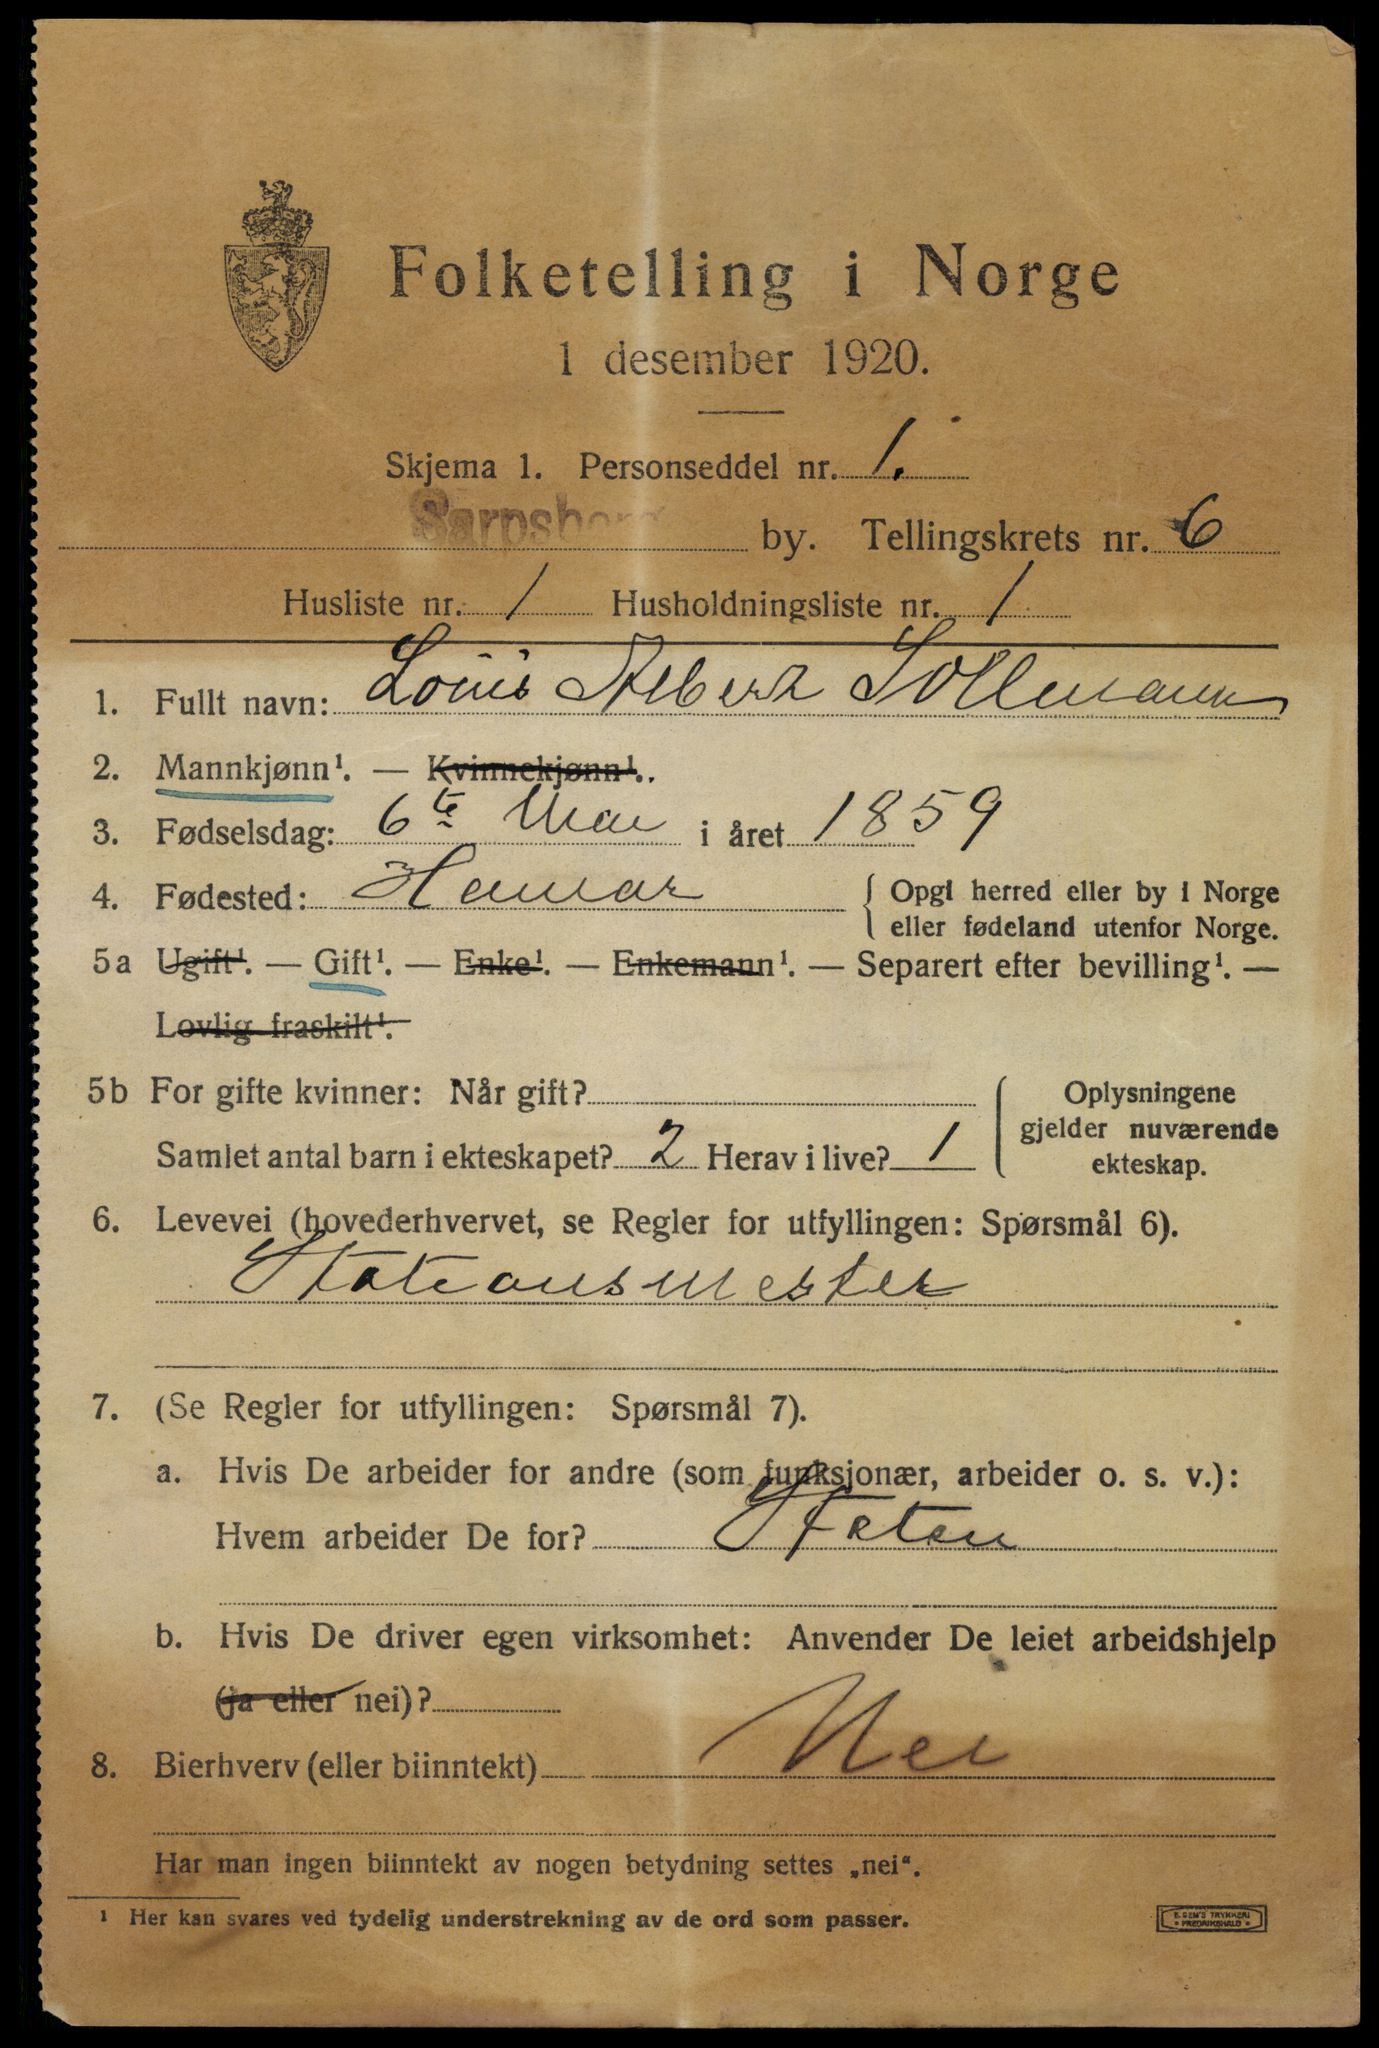 Folketelling i Norge
1 desember 1920.
Skjema 1. Personseddel nr. 1.
Sarpsborg by. Tellingskrets nr. 6
Husliste nr. 1 Husholdningsliste nr. 1
1. Fullt navn: Louis Albert Sollmann
2. Mannkjønn¹. — Kvinnekjønn¹..
3. Fødselsdag: 6te Mai i året 1859
4. Fødested: Hamar { Opgi herred eller by i Norge
eller fødeland utenfor Norge.
5a Ugift¹. — Gift¹. — Enke¹. — Enkemann¹. — Separert efter bevilling¹. —
Lovlig fraskilt¹.
5b For gifte kvinner: Når gift?
Samlet antal barn i ekteskapet? 2 Herav i live? 1
Oplysningene
gjelder nuværende
ekteskap.
6. Levevei (hovederhvervet, se Regler for utfyllingen: Spørsmål 6).
Stationsmester
7. (Se Regler for utfyllingen: Spørsmål 7).
a. Hvis De arbeider for andre (som funksjonær, arbeider o. s. v.):
Hvem arbeider De for? Staten
b. Hvis De driver egen virksomhet: Anvender De leiet arbeidshjelp
(ja eller nei)?
8. Bierhverv (eller biinntekt) Nei
Har man ingen biinntekt av nogen betydning settes „nei“.
¹ Her kan svares ved tydelig understrekning av de ord som passer.
E. SEM'S TRYKKERI
• FREDRIKSHALD •